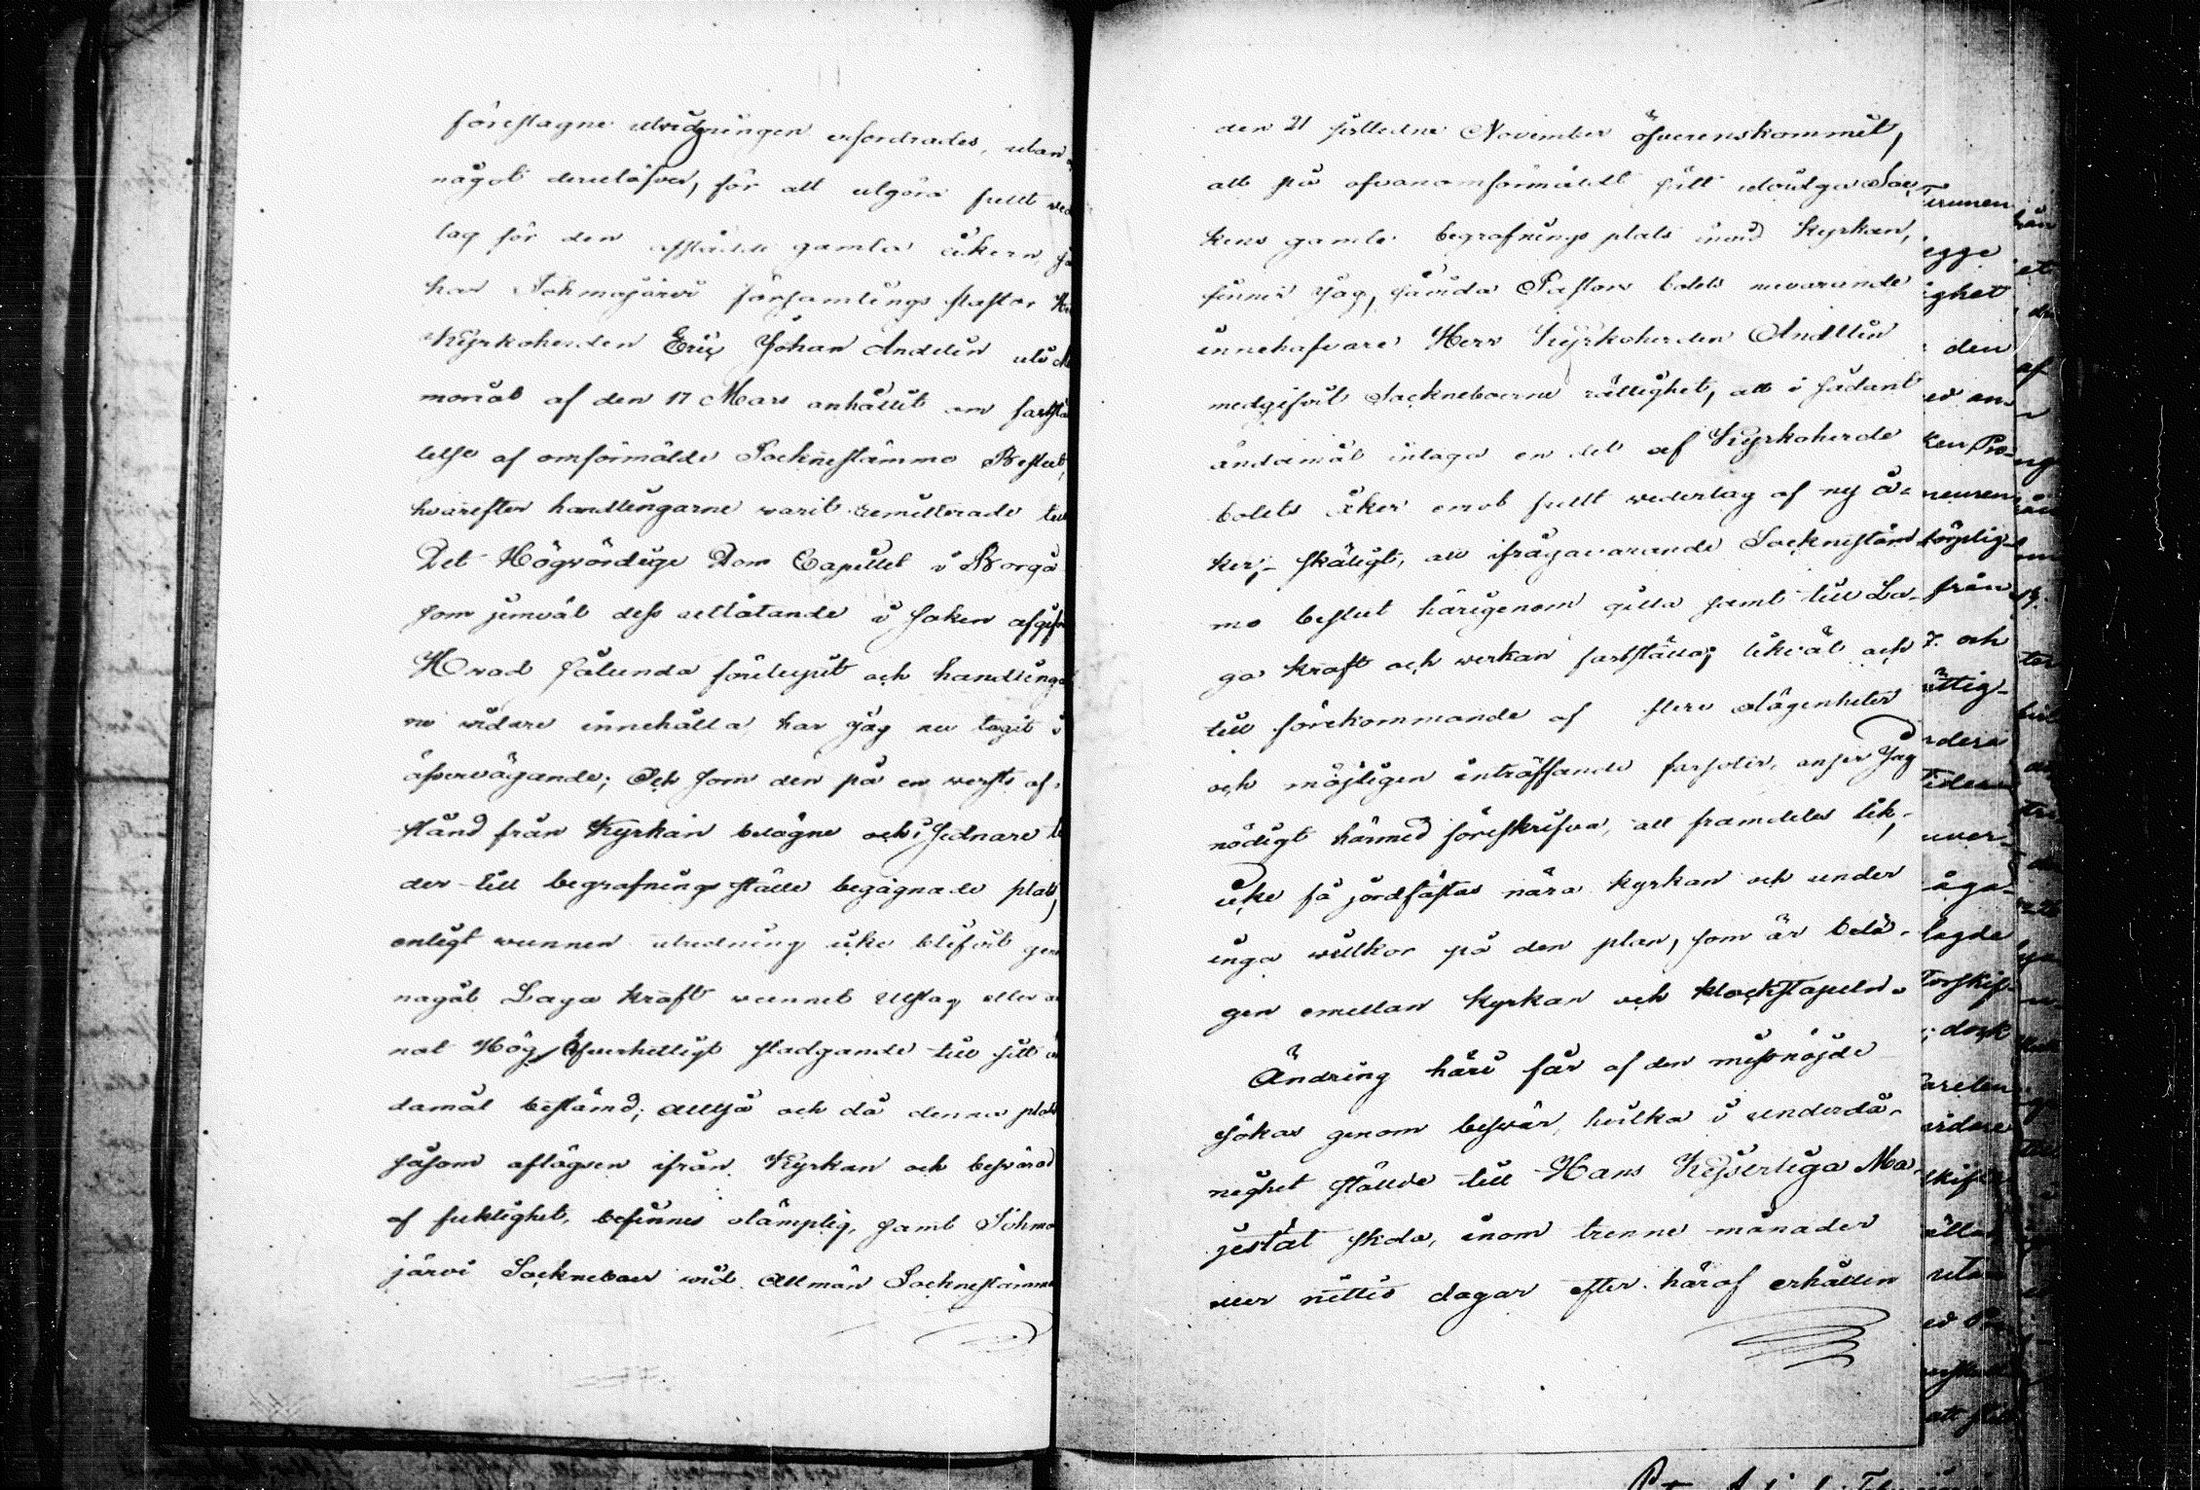 föreslagne utvidgningen erfordrades, utan
något derutöfver, för att utgöra fullt wed
lag för den afstådde gamla åkern, så
har Tohmajärvi församlings Pastor
Kyrkoherden Eric Johan Andelin uti Me
morial af den 17 Mars anhållit om fastställ
telse af omförmälde Sockenstämmo Beslut,
hvarefter handlingarne varit remitterade till
Det Högvördige Dom Capitlet i Borgå
som jemväl dess utlåtande i saken afgifv
Hvad sålunda förelupit och handlingar
ne vidare innehålla, har Jag nu tagit i
öfvervägande; Och som den på en wersts af-
stånd från Kyrkan belägne och i sednare ti
der till begrafnings ställe begagnade plats,
enligt wunnen utredning icke blifvit gen
något Laga kraft wunnet Utslag eller an
nat Hög Öfverhetligt stadgande till sitt än
damål bestämd; alltså och då denna plats
såsom aflägsen ifrån Kyrkan och besvärad
af fuktighet, befinnes olämplig, samt Tohma
järvi Sockneboer wid Allmän Sockenstämma
den 21 sistledne November öfverenskommit,
att på ofvanomförmäldt sätt utvidga Soc
kens gamla begrafnings plats invid Kyrkan,
finner Jag, sedan Pastors bolets nuvarande
innehafvare Herr Kyrkoherden Andelin
medgifvit Sockneboerne rättighet, att i sådant
ändamål intaga en del af Kyrkoherde
bolets åker emot fullt wederlag af ny å-
ker, skäligt, att ifrågavarande Sockenstäm
mo beslut härigenom gilla samt till La-
ga kraft och werkan fastställa; likväl och
till förekommande af flere olägenheter
och möjligen inträffande farsoter, anser Jag
nödigt härmed föreskrifva, att framdeles lik,
icke få jordfästas nära kyrkan och under
inga willkor på den plan, som är belä-
gen emellan Kyrkan och klockstapeln.
Ändring häri får af den missnöjde
sökas genom besvär, hvilka i underdå-
nighet ställde till Hans Kejserliga Ma-
jestät skola, inom trenne månader
eller nittio dagar efter häraf erhållen